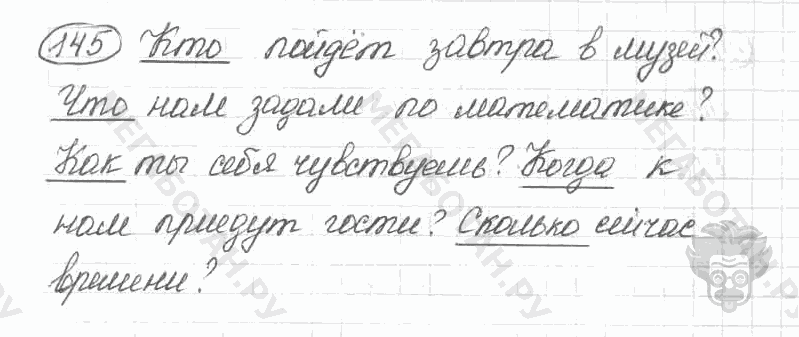 145 Кто пойдём завтра в музей?
Что нам задали по математике?
Как ты себя чувствуешь? Когда к
нам приедут гости? Сколько сейчас
времени?
МЕГАБОТАН.РУ
МЕГАБОТАН.РУ
МЕГАБОТАН.РУ